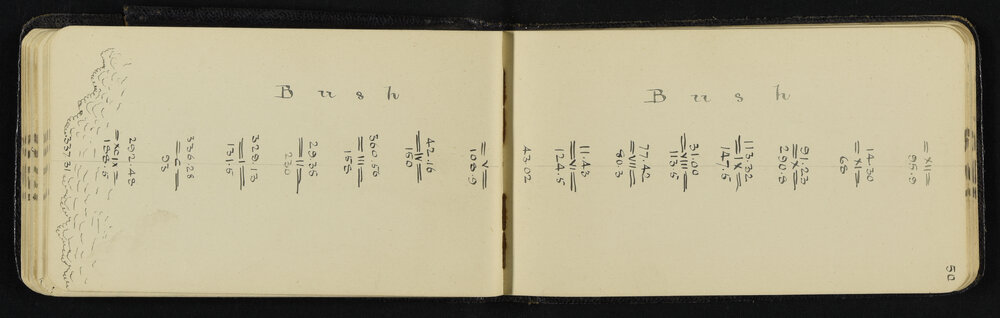 50
B u s h
XII
95.9
14.30
XI
68
91.23
X
290.8
113.32
IX
147.5
31.00
VIII
113.5
77.42
VII
80.3
11.43
VI
124.5
43.02
B u s h
V
109.9
42.16
IV
150
360.50
III
158
29.35
II
230
329.13
I
131.5
336.28
C
93
292.48
XCIX
188.5
337.31